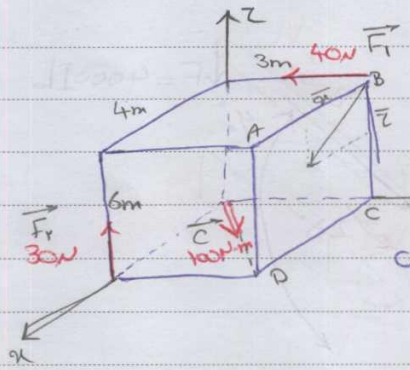 z
3m 40N F₁
B
4m
A
6m
F₂
30N
C
100N.m
C
D
x